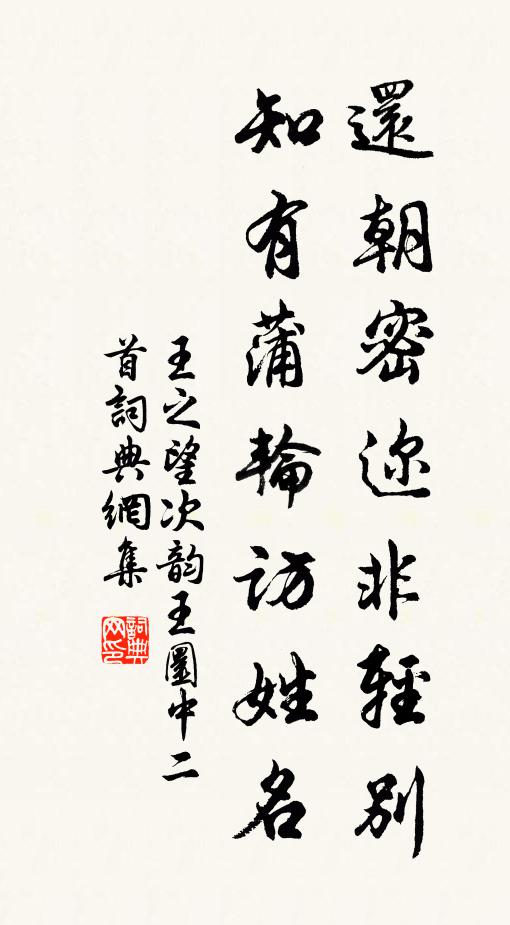 還朝密迩非輕別
知有蒲輪訪姓名
王之望次韵王圖中二
首詞典網集
詞典
网印